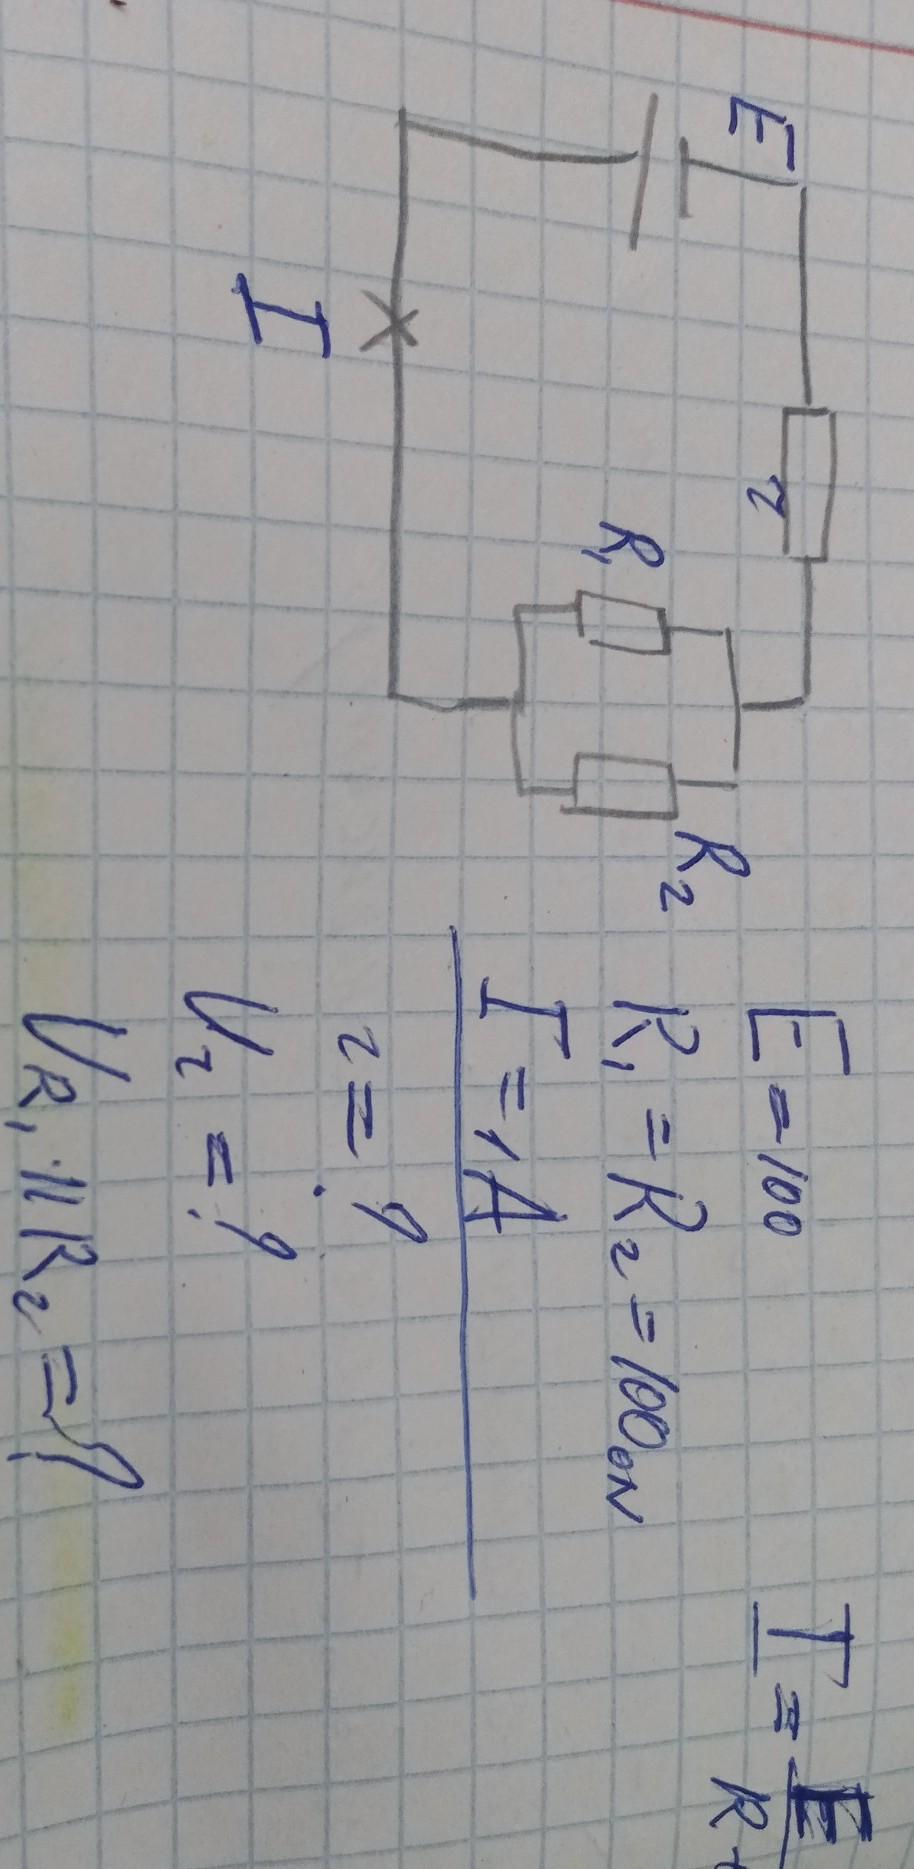 E
r
R₁
R₂
I
E = 100
R₁ = R₂ = 100 ом
I = 1A
r = ?
U r = ?
U R₁ || R₂ = ?
I = E
R +